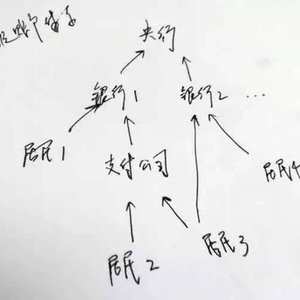 央行
银行1
银行2 ...
居民1
支付公司
居民4
居民2
居民3